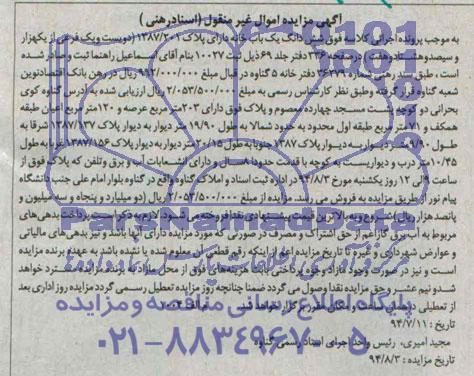 آگهی مزایده اموال غیر منقول (اسناد رهنی)
به موجب پرونده اجرایی کلاسه فوق شش دانگ یک باب خانه دارای پلاک ۱۳۸۷/۲۰۱ (دویست و یک فرعی از یکهزار
و سیصد و هشتاد و هفت) در صفحه ۳۳۶ دفتر جلد ۶۹ ذیل ثبت ۱۰۰۲۷ بنام آقای اسماعیل راهنما ثبت و صادر شده
است، طبق سند رهنی شماره ۳۶۲۷۹ دفتر خانه ۵ گناوه در قبال مبلغ ۹۹۲/۰۰۰/۰۰۰ ریال در رهن بانک اقتصاد نوین
شعبه گناوه قرار گرفته و طبق نظر کارشناس رسمی به مبلغ ۲/۰۵۳/۵۰۰/۰۰۰ ریال ارزیابی شده به آدرس گناوه کوی
بحرانی دو کوچه بیست مسجد چهارده معصوم و پلاک فوق دارای ۲۰۳ متر مربع عرصه و ۱۲۰ متر مربع اعیان طبقه
همکف و متر مربع طبقه اول محدود به حدود شمالا به طول ۱۹/۹۰ متر دیوار به دیوار پلاک ۱۳۸۷/۱۳۷ شرقا به
طول متر دیوار به دیوار پلاک ۱۳۸۷ جنوبا به طول ۲۰/۱۵ متر دیوار به دیوار پلاک ۱۳۸۷/۱۵۶ غربا به طول
۱۰/۴۵ متر درب و دیواریست به کوچه با قدمت حدودا سال و دارای انشعابات آب و برق و تلفن که پلاک فوق از
ساعت ۹ الی ۱۲ روز یکشنبه مورخ ۹۴/۸/۳ در اداره ثبت اسناد و املاک گناوه واقع در گناوه بلوار امام علی جنب دانشگاه
پیام نور از طریق مزایده به فروش می رسد. مزایده از مبلغ ۲/۰۵۳/۵۰۰/۰۰۰ ریال (دو میلیارد و پنجاه و سه میلیون و
پانصد هزار ریال) شروع و به بالاترین قیمت پیشنهادی نقدا فروخته می شود. لازم به ذکر است پرداخت بدهی های
مربوط به آب، برق، گاز اعم از حق اشتراک و مصرف در صورتی که مورد مزایده دارای آنها باشد و نیز بدهی های مالیاتی
و عوارض شهرداری و غیره تا تاریخ مزایده اعم از اینکه رقم قطعی آن معلوم شده یا نشده باشد به عهده برنده مزایده
است و نیز در صورت وجود مازاد وجوه پرداختی بابت هزینه های فوق از محل مازاد به برنده مزایده مسترد خواهد
شد و نیم عشر و حق مزایده نقدا وصول می گردد ضمنا چنانچه روز مزایده تعطیل رسمی گردد مزایده روز اداری بعد
از تعطیلی در همان ساعت و مکان مقرر برگزار خواهد شد
تاریخ: ۹۴/۷/۱۱
مجید امیری، رئیس واحد اجرای اسناد رسمی گناوه
تاریخ مزایده: ۹۴/۸/۳
پایگاه اطلاع رسانی مناقصه و مزایده
۰۲۱-۸۸۳۴۹۶۷۰-۵